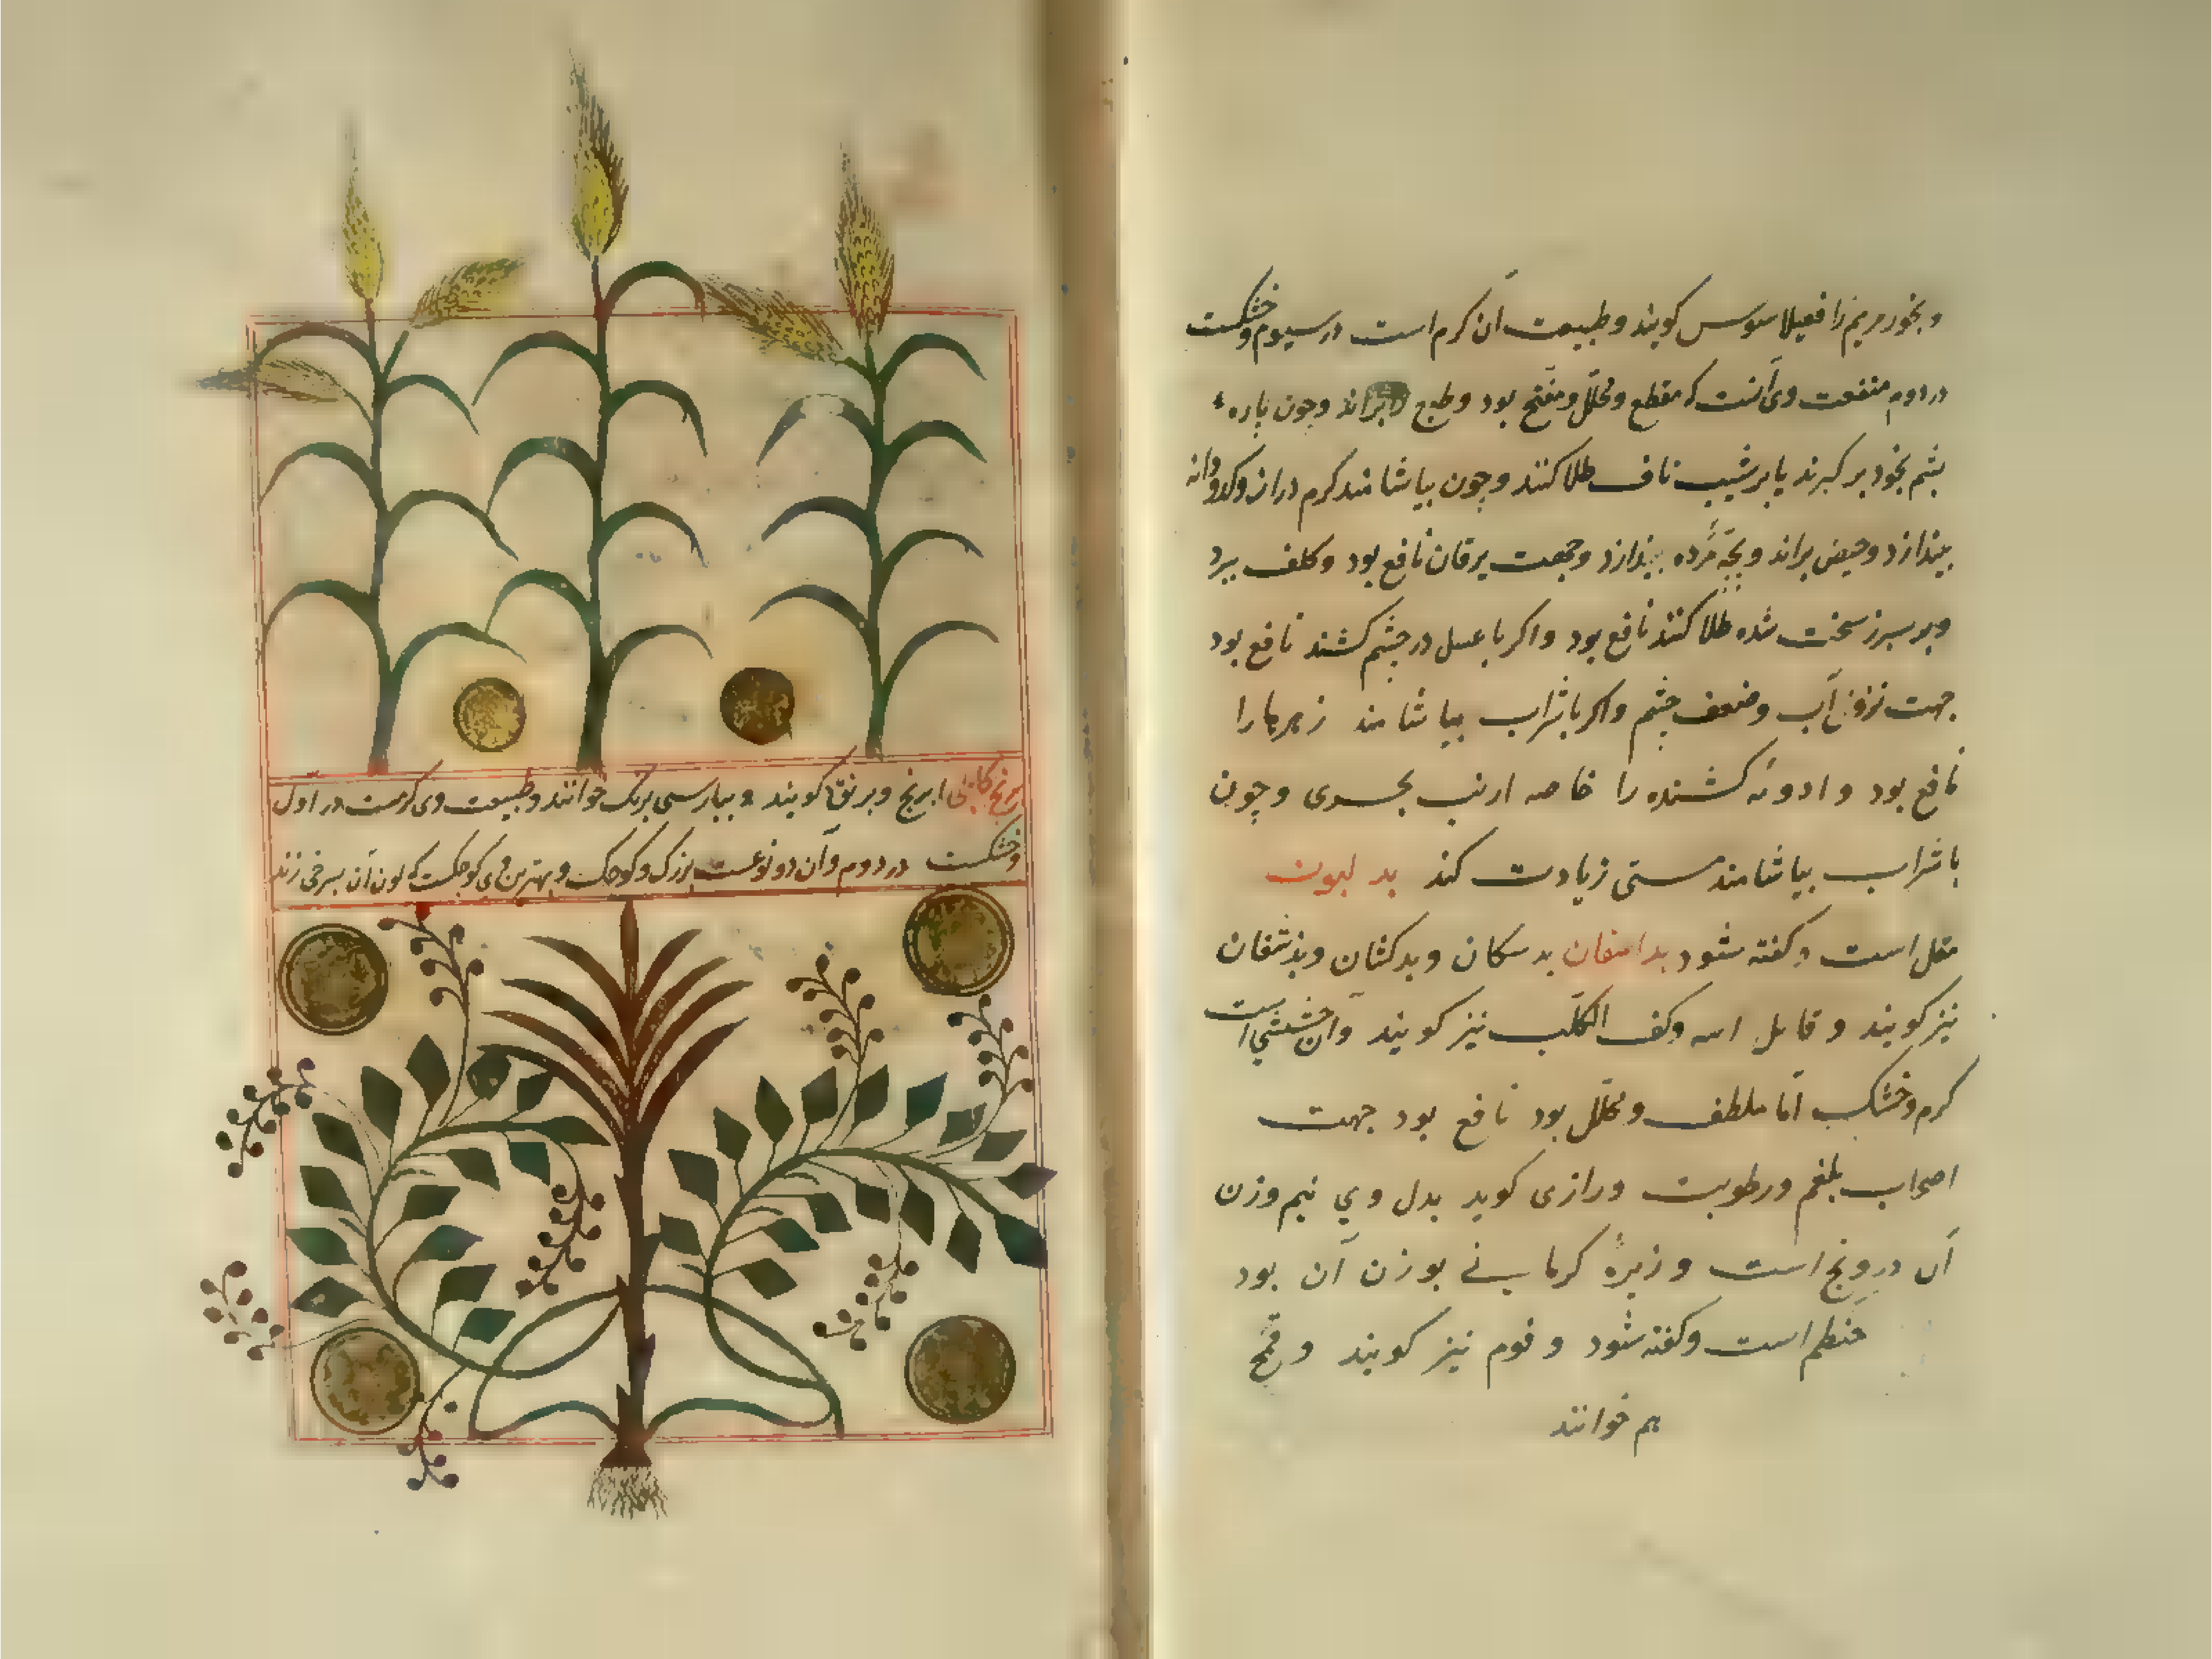 و بخور مریم را فقیلاسوس کویند و طبیعت آن کرم است در سیوم و خشکست
در دوم منفعت وی آنست که مقطع و محلل و مفتح بود و طبع براند و چون پاره
پشم بخود بر کیرند یا بر شیب ناف طلا کنند و چون بیاشامند کرم دراز و کدو دانه
بیندازد و حیض براند و بچه مرده بیندازد و جهت یرقان نافع بود و کلف ببرد
و بر سپرز سخت شده طلا کنند نافع بود و اکر با عسل در چشم کشند نافع بود
جهت نزول آب و ضعف چشم و اکر با شراب بیاشامند زهرها را
نافع بود و ادویه کشنده را خاصه ارنب بحری و چون
با شراب بیاشامند مستی زیادت کند بد لیون
مقل است و کفته شود بداسفان بد سکان و بد کشان و بذشفان
نیز کویند و قابل اسه و کف الکلب نیز کویند و آن خشبی است
کرم و خشک اما ملطف و محلل بود نافع بود جهت
اصحاب بلغم و رطوبت و رازی کوید بدل وی نیم وزن
آن درونج است و زیره کرمانی بوزن آن بود
حنطه است و کفته شود و فوم نیز کویند و قمح
هم خوانند
برنج کابلی ابرنج و برنق کویند و بپارسی برنک خوانند و طبیعت وی کرمست در اول
و خشکست در دوم و آن دو نوعست بزرک و کوچک و بهترین وی کوچکست که لون آن بسرخی زند